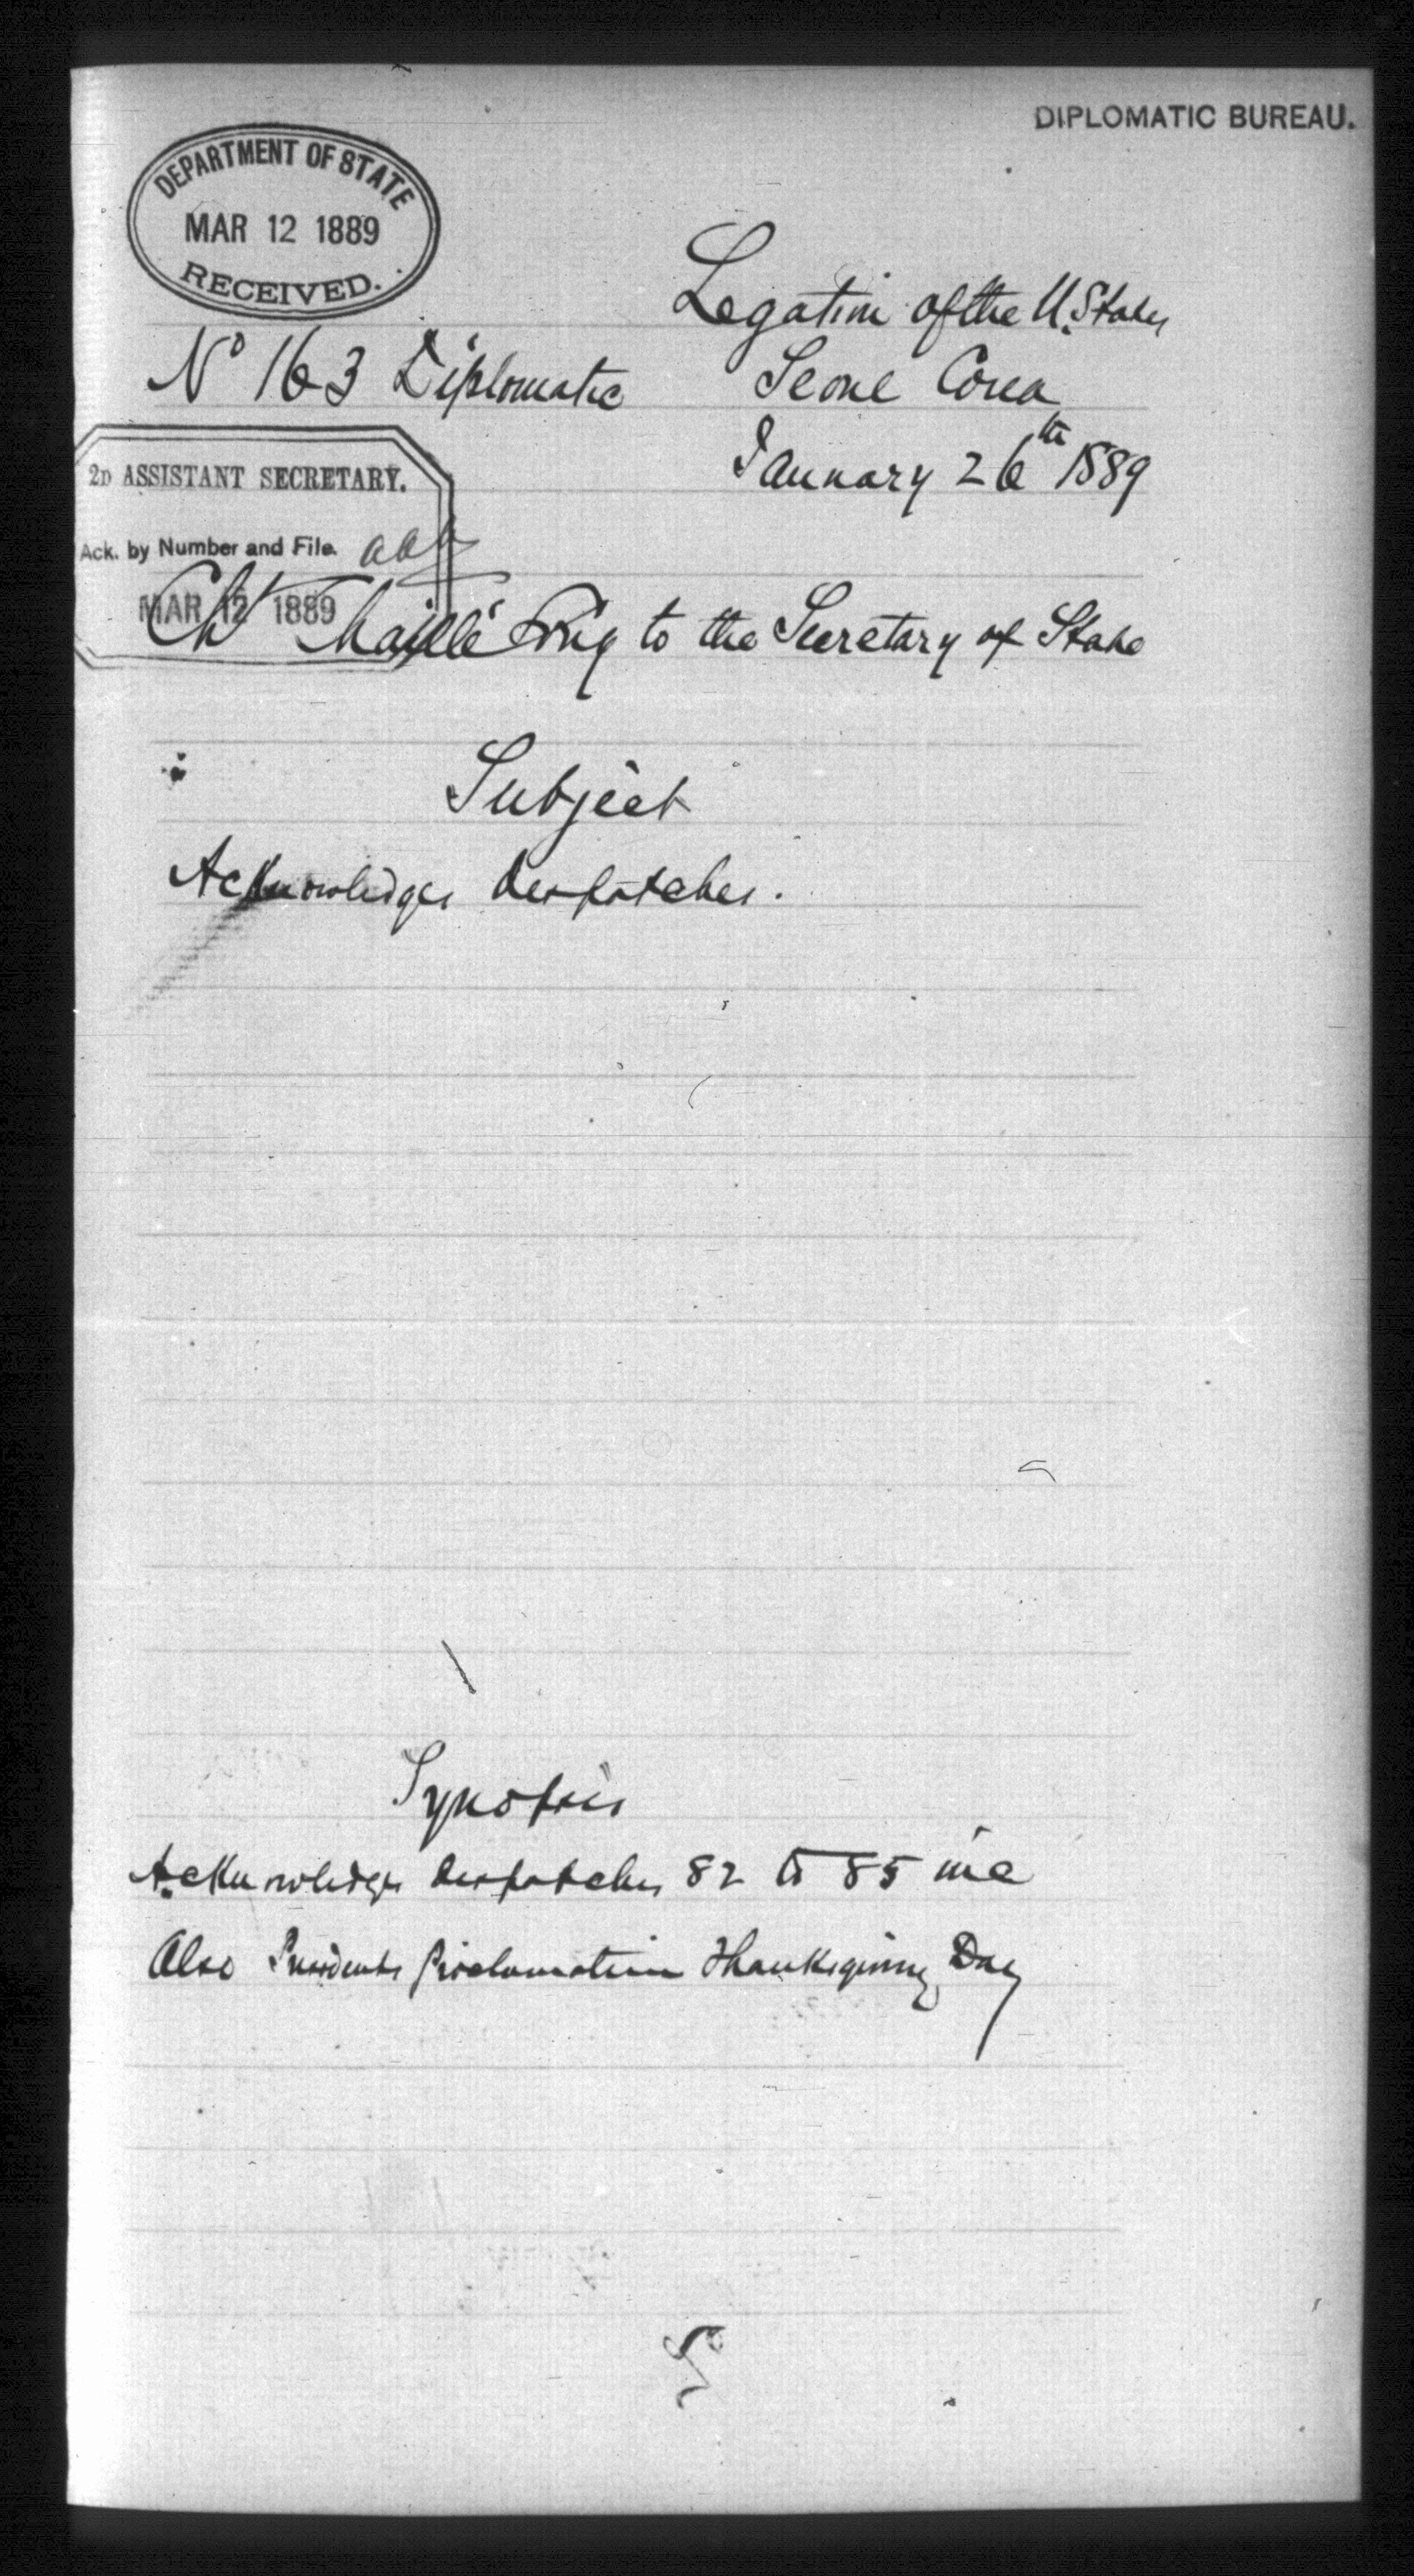 DIPLOMATIC BUREAU.
DEPARTMENT OF STATE
MAR 12 1889
RECEIVED.
Legation of the U. States
No 163 Diplomatic Seoul Corea
January 26th 1889
2D ASSISTANT SECRETARY.
Ack. by Number and File.
MAR 12 1889
Ch Chaillé Long to the Secretary of State
Subject
Acknowledges despatches.
Synopsis
Acknowledges despatches 82 to 85 inc
Also Presidents Proclamation Thanksgiving Day